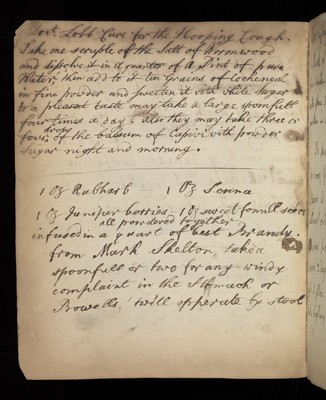 Doct. Lobb Cure for the Hooping Cough.
Take one scruple of the Salt of Wormwood
and dissolve it in a quarter of a Pint of pure
Water; then add to it ten Grains of Cocheneal
in fine powder and sweeten it with white Sugar
to a pleasant taste may take a large spoonfull
four times a day. also they may take three or
drops
four of the balsum of Capivi with powder
Sugar night and morning.
1 Oz Rubharb 1 Oz Senna
1 Oz Juniper berries 1 Oz sweet fennell seeds
all powdered together
infused in a quart of best Brandy.
from Mark Skelton, take a
spoonfull or two for any windy
complaint in the Stomach or
Bowells, twill opperate by stool